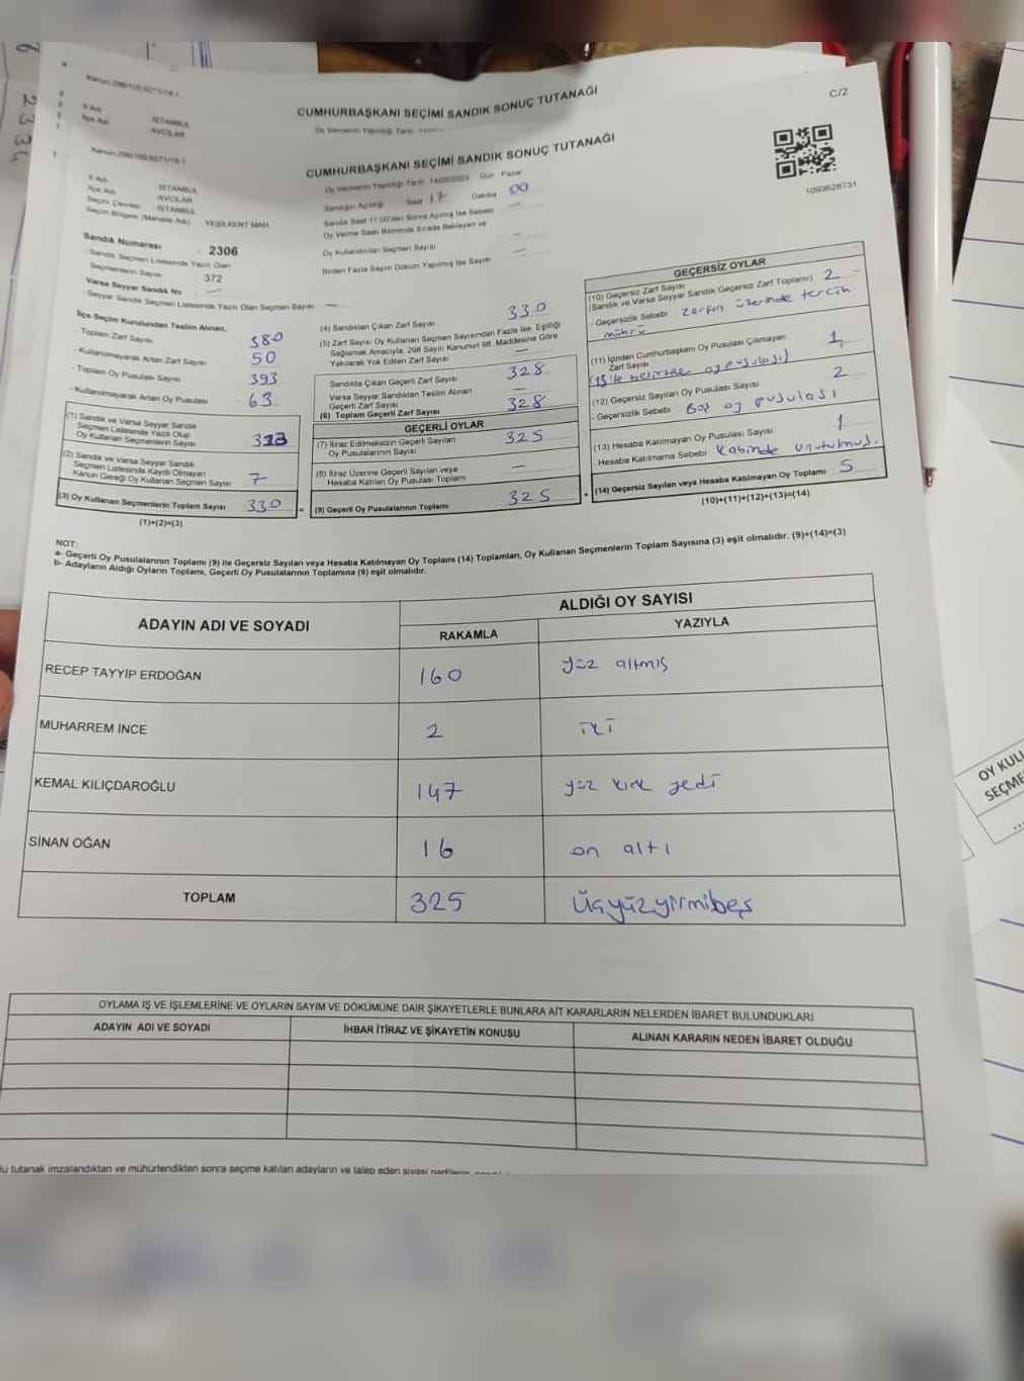 Kanun:298/105,6271/18-1
CUMHURBAŞKANI SEÇİMİ SANDIK SONUÇ TUTANAĞI
C/2
İl Adı İSTANBUL
İlçe Adı AVCILAR
Oy Vermenin Yapıldığı Tarih
Kanun:298/105,6271/18-1
CUMHURBAŞKANI SEÇİMİ SANDIK SONUÇ TUTANAĞI
1093628731
İl Adı İSTANBUL
İlçe Adı AVCILAR
Seçim Çevresi İSTANBUL
Seçim Bölgesi (Mahalle Adı) YEŞİLKENT MAH.
Oy Vermenin Yapıldığı Tarih 14/05/2023 Gün Pazar
Sandığın Açıldığı Saat 17 Dakika 00
Sandık Saat 17:00'den Sonra Açılmış İse Sebebi —
Oy Verme Saati Bitiminde Sırada Bekleyen ve
Oy Kullandırılan Seçmen Sayısı —
Birden Fazla Sayım Döküm Yapılmış İse Sayısı —
Sandık Numarası 2306
-Sandık Seçmen Listesinde Yazılı Olan
Seçmenlerin Sayısı 372
Varsa Seyyar Sandık No —
-Seyyar Sandık Seçmen Listesinde Yazılı Olan Seçmen Sayısı —
İlçe Seçim Kurulundan Teslim Alınan;
- Toplam Zarf Sayısı 380
- Kullanılmayarak Artan Zarf Sayısı 50
- Toplam Oy Pusulası Sayısı 393
-Kullanılmayarak Artan Oy Pusulası 63
(1) Sandık ve Varsa Seyyar Sandık
Seçmen Listesinde Yazılı Olup
Oy Kullanan Seçmenlerin Sayısı 323
(2) Sandık ve Varsa Seyyar Sandık
Seçmen Listesinde Kayıtlı Olmayan
Kanun Gereği Oy Kullanan Seçmen Sayısı 7
(3) Oy Kullanan Seçmenlerin Toplam Sayısı 330
(1)+(2)=(3)
(4) Sandıktan Çıkan Zarf Sayısı 330
(5) Zarf Sayısı Oy Kullanan Seçmen Sayısından Fazla İse, Eşitliği
Sağlamak Amacıyla; 298 Sayılı Kanunun 98. Maddesine Göre
Yakılarak Yok Edilen Zarf Sayısı —
Sandıkta Çıkan Geçerli Zarf Sayısı 328
Varsa Seyyar Sandıktan Teslim Alınan
Geçerli Zarf Sayısı —
(6) Toplam Geçerli Zarf Sayısı 328
GEÇERLİ OYLAR
(7) İtiraz Edilmeksizin Geçerli Sayılan
Oy Pusulalarının Sayısı 325
(8) İtiraz Üzerine Geçerli Sayılan veya
Hesaba Katılan Oy Pusulası Toplamı —
(9) Geçerli Oy Pusulalarının Toplamı 325
GEÇERSİZ OYLAR
(10) Geçersiz Zarf Sayısı
(Sandık ve Varsa Seyyar Sandık Geçersiz Zarf Toplamı) 2
- Geçersizlik Sebebi Zarfın üzerinde tercih
mührü
(11) İçinden Cumhurbaşkanı Oy Pusulası Çıkmayan
Zarf Sayısı 1
(12) Geçersiz Sayılan Oy Pusulası Sayısı 2
- Geçersizlik Sebebi Boş oy pusulası
(13) Hesaba Katılmayan Oy Pusulası Sayısı 1
Hesaba Katılmama Sebebi Kabinde unutulmuş.
(14) Geçersiz Sayılan veya Hesaba Katılmayan Oy Toplamı 5
(10)+(11)+(12)+(13)=(14)
NOT:
a- Geçerli Oy Pusulalarının Toplamı (9) ile Geçersiz Sayılan veya Hesaba Katılmayan Oy Toplamı (14) Toplamları, Oy Kullanan Seçmenlerin Toplam Sayısına (3) eşit olmalıdır. (9)+(14)=(3)
b- Adayların Aldığı Oyların Toplamı, Geçerli Oy Pusulalarının Toplamına (9) eşit olmalıdır.
ADAYIN ADI VE SOYADI
ALDIĞI OY SAYISI
RAKAMLA YAZIYLA
RECEP TAYYİP ERDOĞAN 160 yüz altmış
MUHARREM İNCE 2 iki
KEMAL KILIÇDAROĞLU 147 yüz kırk yedi
SİNAN OĞAN 16 on altı
TOPLAM 325 Üçyüzyirmibeş
OYLAMA İŞ VE İŞLEMLERİNE VE OYLARIN SAYIM VE DÖKÜMÜNE DAİR ŞİKAYETLERLE BUNLARA AİT KARARLARIN NELERDEN İBARET BULUNDUKLARI
ADAYIN ADI VE SOYADI İHBAR İTİRAZ VE ŞİKAYETİN KONUSU ALINAN KARARIN NEDEN İBARET OLDUĞU
Bu tutanak imzalandıktan ve mühürlendikten sonra seçime katılan adayların ve talep eden siyasi
OY KULL
SEÇME